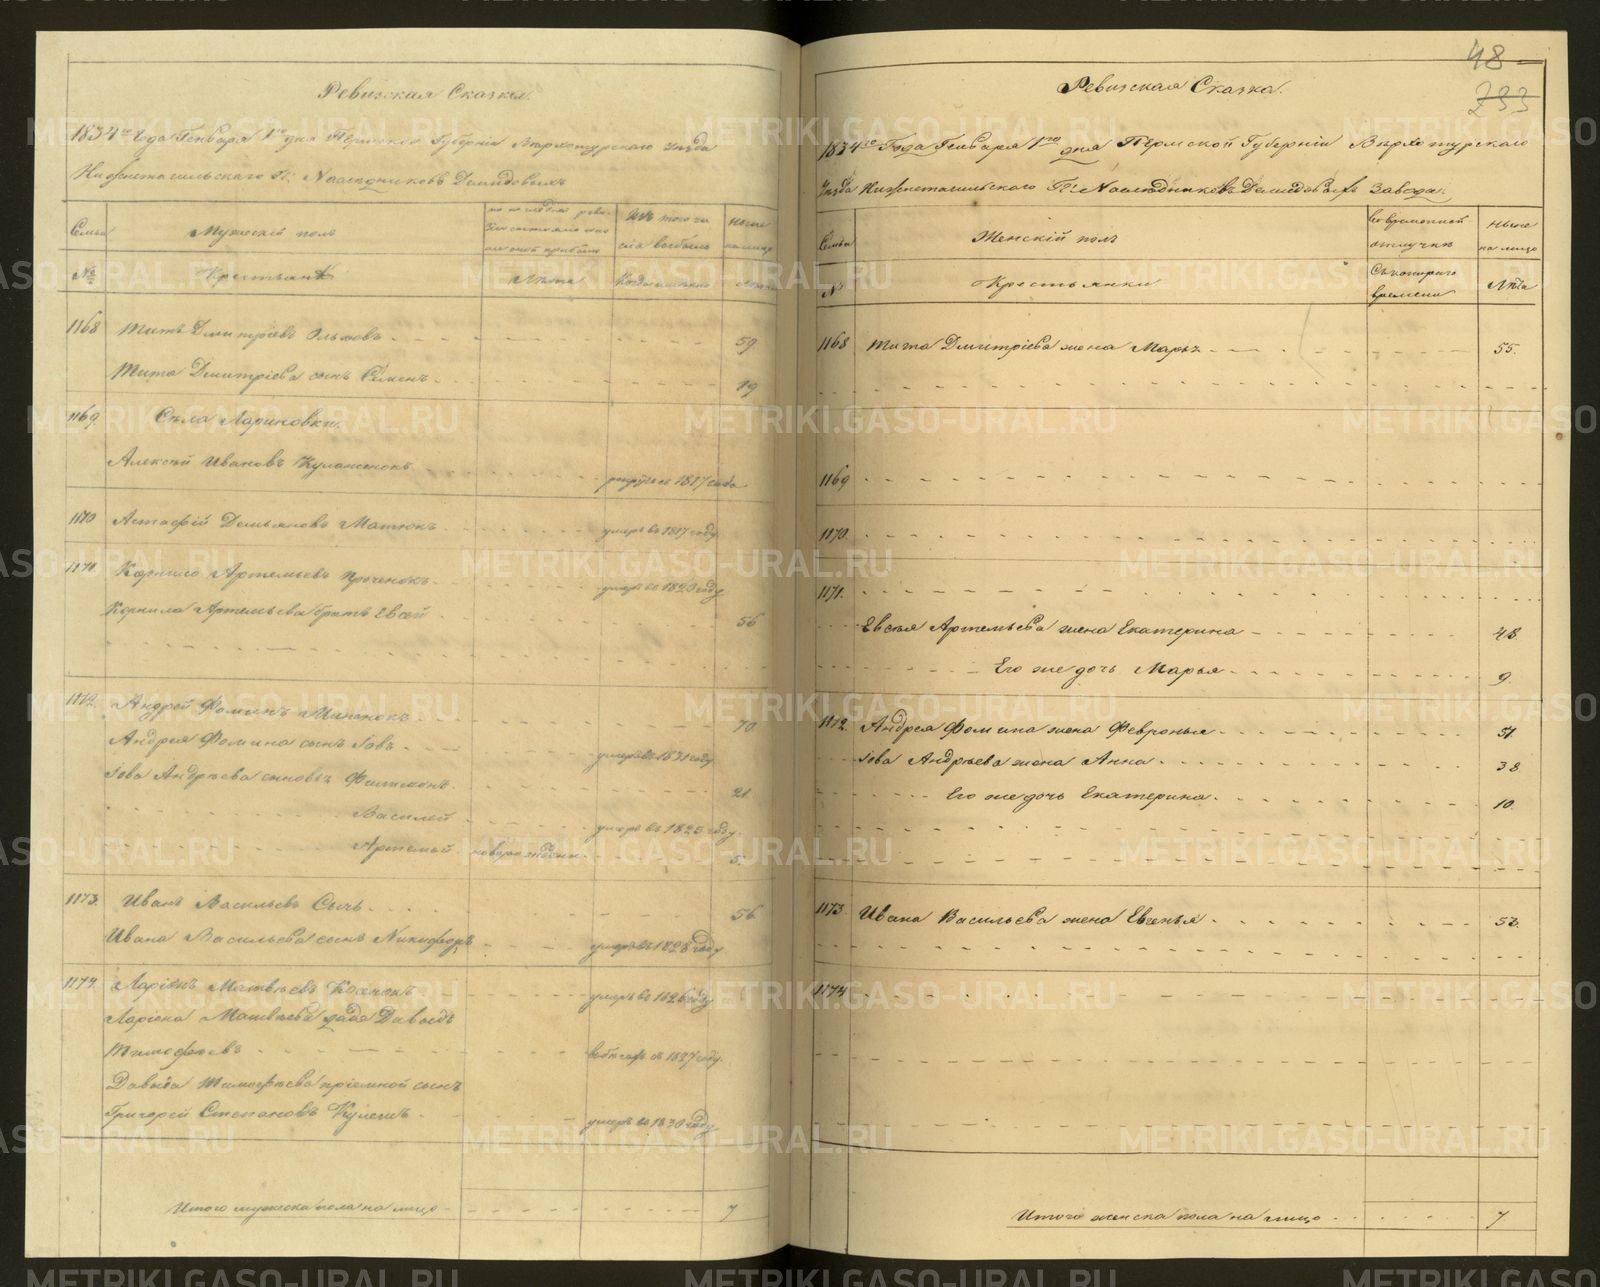 Ревизская Сказка.
1834го Года Генваря 1го дня Пермской Губернiи Верхотурскаго уезда
Нижнетагильскаго Гг. Наследниковъ Демидовыхъ
Семьи
Мужескiй полъ
Изъ того чи
сла выбыло
Ныне
на лицо
№
Крестьяне
Лета
Когда именно
Лета
1168
Титъ Дмитрiевъ
59
Тита Дмитрiева сынъ Семенъ
19
1169.
Села Лариновки.
Алексей Ивановъ
1817 года
1170
Астафiй Демьяновъ Матюкъ
умеръ въ 1817 году
1171.
Корнило Артемьевъ
умеръ въ 1820 году
Корнила Артемьева братъ Евсей
56
1172.
Андрей Фоминъ
70
Андрея Фомина сынъ Iовъ
умеръ въ 1831 году
Iова Андреева сыновья Филимонъ
21
Василей
умеръ въ 1825 году
Артемьй
новорожденъ
5.
1173.
Иванъ Васильевъ Сычь
56
Ивана Васильева сынъ Никифоръ
умеръ въ 1828 году
1174.
Ларiонъ Матвеевъ
умеръ въ 1826 году
Ларiона Матвеева дядя Давыдъ
Тимофеевъ
въ 1827 году
Давыда Тимофеева прiемной сынъ
Григорей Степановъ Кулешъ
умеръ въ 1830 году
Итого мужеска пола на лицо
7
48
233
Ревизская Сказка.
1834го Года Генваря 1го дня Пермской Губернiи Верхотурскаго
Уезда Нижнетагильскаго Гг. Наследниковъ Демидовыхъ завода
Семьи
Женскiй полъ
Во временной
отлучке
Ныне
на лицо
№
Крестьянки
Съ котораго
времени
Лета
1168
Тита Дмитрiева жена Марья
55.
1169
1170.
1171.
Евсея Артемьева жена Екатерина
48.
Его же дочь Марья
9.
1172.
Андрея Фомина жена Февронья
51.
Iова Андреева жена Анна
38
Его же дочь Екатерина.
10.
1173
Ивана Васильева жена Евгенья
53.
1174
Итого женска пола на лицо
7
METRIKI.GASO-URAL.RU